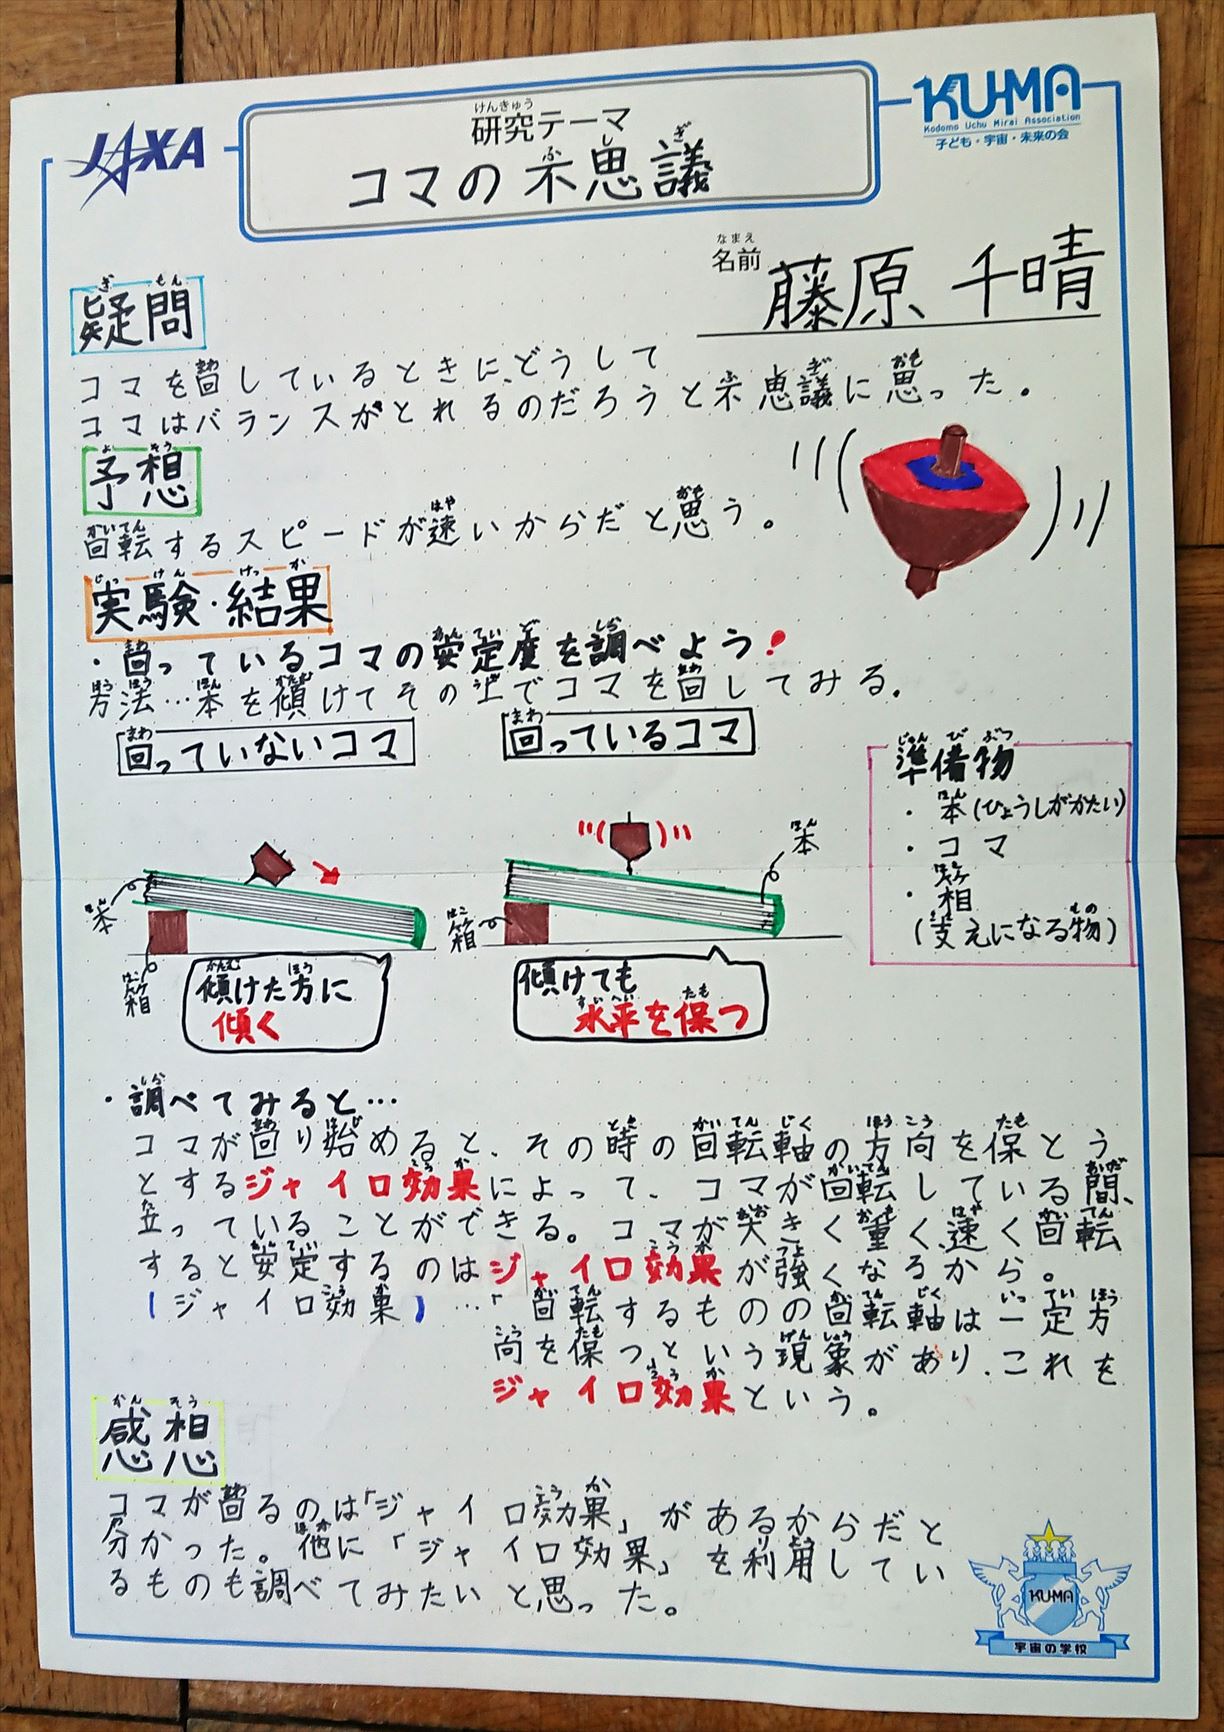 JAXA
けんきゅう
研究テーマ
コマの不思議
ふしぎ
KU-MA
Kodomo Uchu Mirai Association
子ども・宇宙・未来の会
なまえ
名前
藤原 千晴
ぎもん
疑問
コマを回しているときに、どうして
コマはバランスがとれるのだろうと不思議に思った。
よそう
予想
回転するスピードが速いからだと思う。
じっけん けっか
実験・結果
・回っているコマの安定度を調べよう!
方法…本を傾けてその上でコマを回してみる。
回っていないコマ
回っているコマ
じゅんびぶつ
準備物
・本(ひょうしがかたい)
・コマ
・箱
(支えになる物)
本
箱
傾けた方に
傾く
本
箱
傾けても
水平を保つ
・調べてみると…
コマが回り始めると、その時の回転軸の方向を保とう
とするジャイロ効果によって、コマが回転している間、
立っていることができる。コマが大きく重く、速く回転
すると安定するのはジャイロ効果が強くなるから。
(ジャイロ効果)…「回転するものの回転軸は一定方
向を保つという現象があり、これを
ジャイロ効果という。
かんそう
感想
コマが回るのは「ジャイロ効果」があるからだと
分かった。他に「ジャイロ効果」を利用してい
るものも調べてみたいと思った。
KU-MA
宇宙の学校